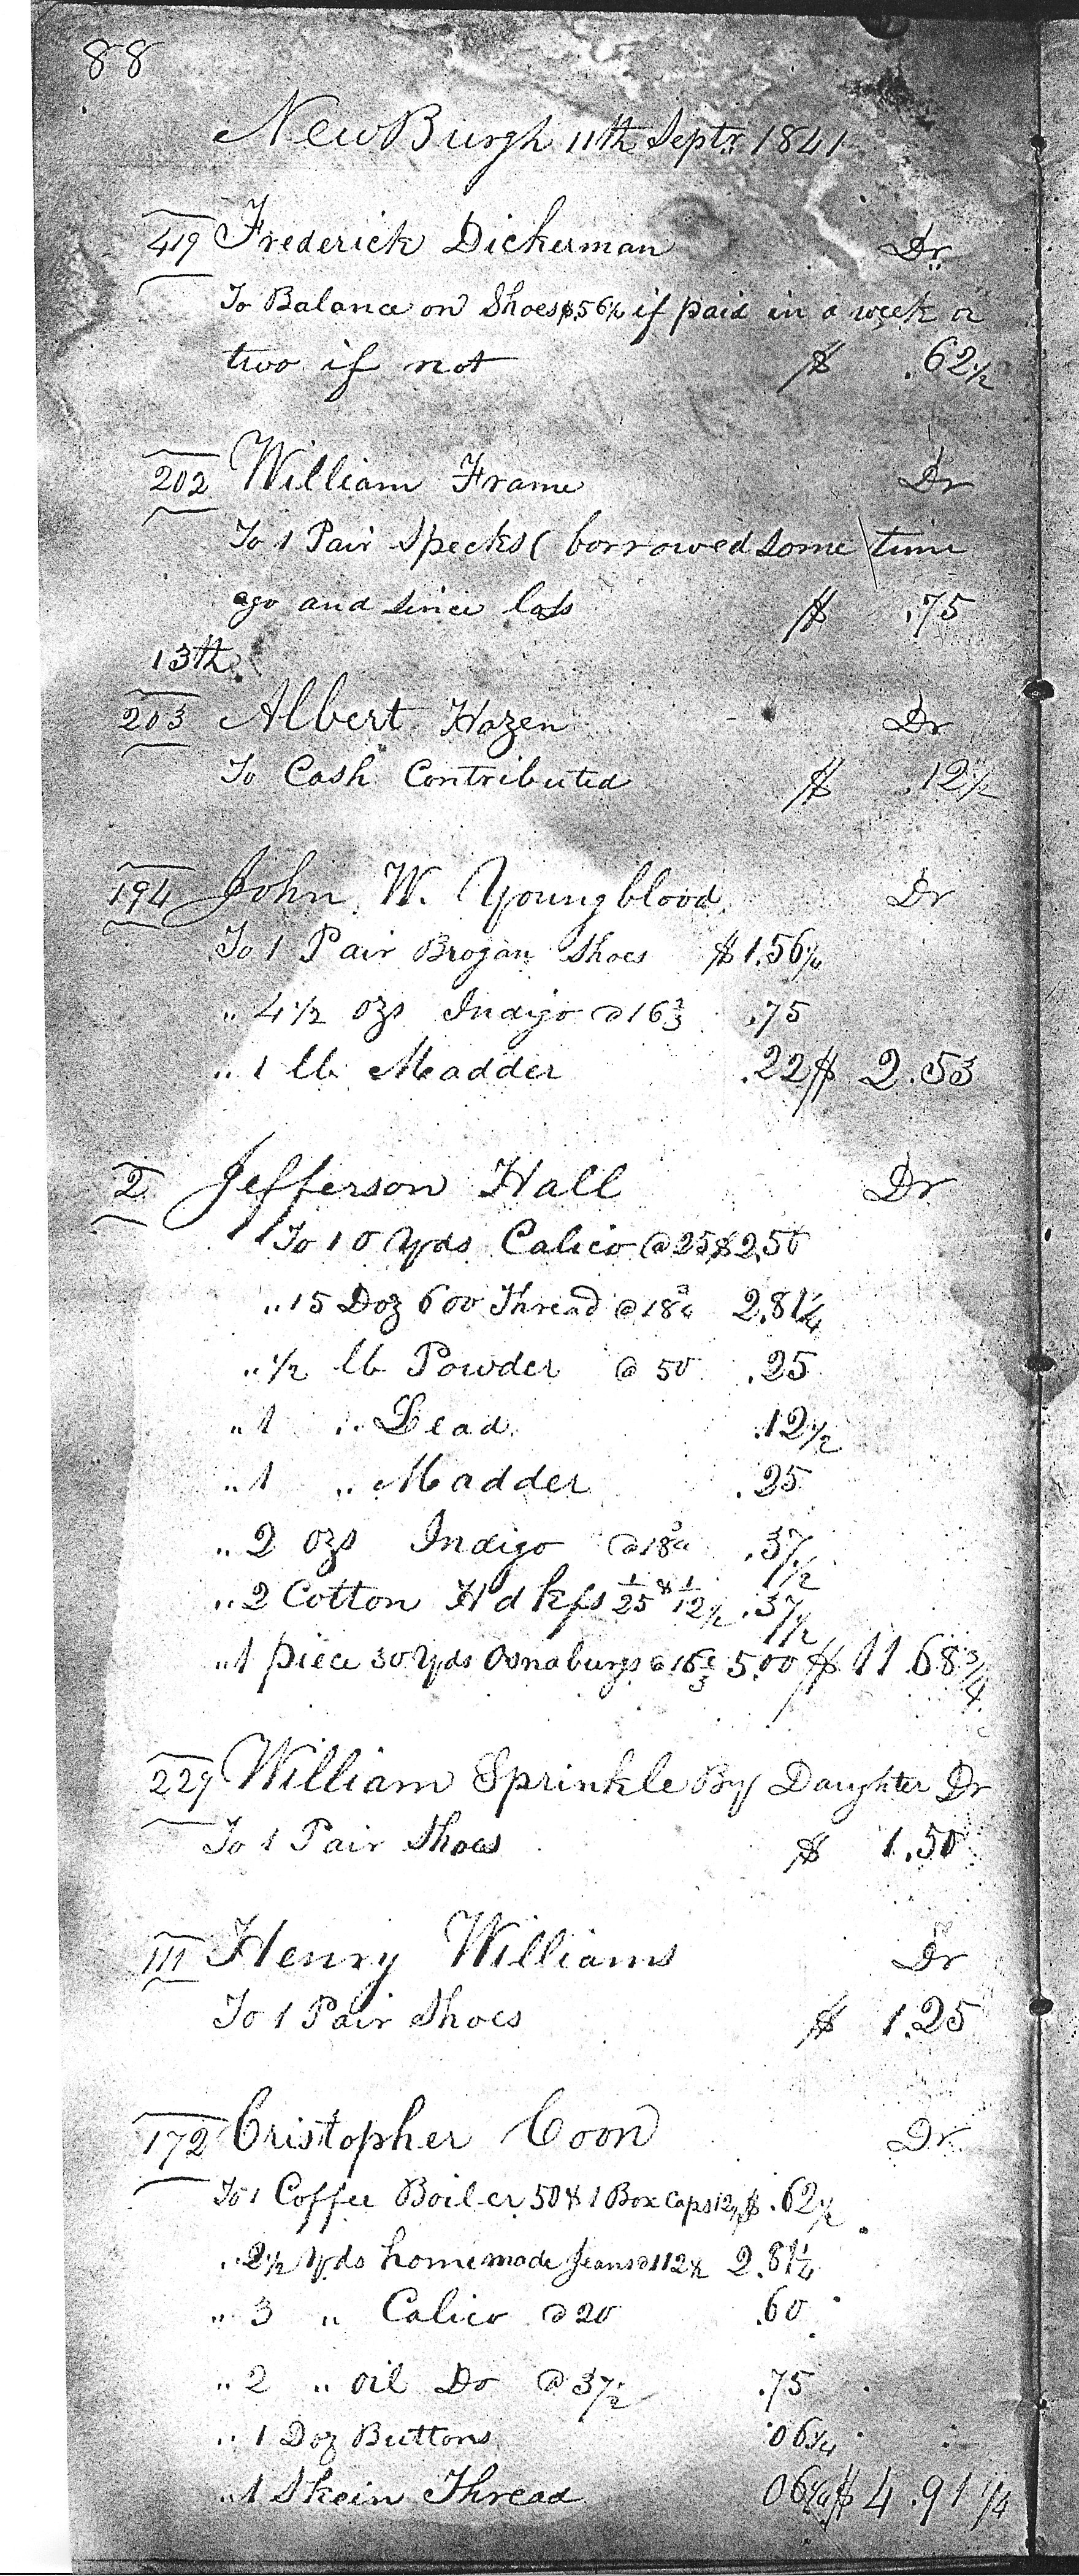 88
NewBurgh 11th Septr. 1841
419 Frederick Dickerman Dr.
To Balance on Shoes $.56¼ if paid in a week or
two if not $ .62½
202 William Frame Dr
To 1 Pair Specks ( borrowed some time
ago and since lost $ .75
13th.
203 Albert Hazen Dr
To Cash Contributed $ .12½
194 John W. Youngblood Dr
To 1 Pair Brogan Shoes $1.56¼
,, 4½ ozs Indigo @ 16⅔ .75
,, 1 lb Madder .22 $ 2.53
2 Jefferson Hall Dr
To 10 Yds Calico @ 25 $2.50
,, 15 Doz 600 Thread @ 18¾ 2.81¼
,, ½ lb Powder @ 50 .25
,, 1 ,, Lead .12½
,, 1 ,, Madder .25
,, 2 ozs Indigo @ 18¾ .37½
,, 2 Cotton Hdkfs 1/25 & 1/12½ .37½
,, 1 piece 30 Yds Osnaburgs @ 16⅔ 5.00 $ 11.68¾
229 William Sprinkle By Daughter Dr
To 1 Pair Shoes $ 1.50
111 Henry Williams Dr
To 1 Pair Shoes $ 1.25
172 Cristopher Coon Dr
To 1 Coffee Boiler 50 & 1 Box Caps 12½ $ .62½
,, 2½ Yds homemade Jeans @ 112½ 2.81¼
,, 3 ,, Calico @ 20 .60
,, 2 ,, oil Do @ 37½ .75
,, 1 Doz Buttons .06¼
,, 1 Skein Thread 06¼ $ 4.91¼